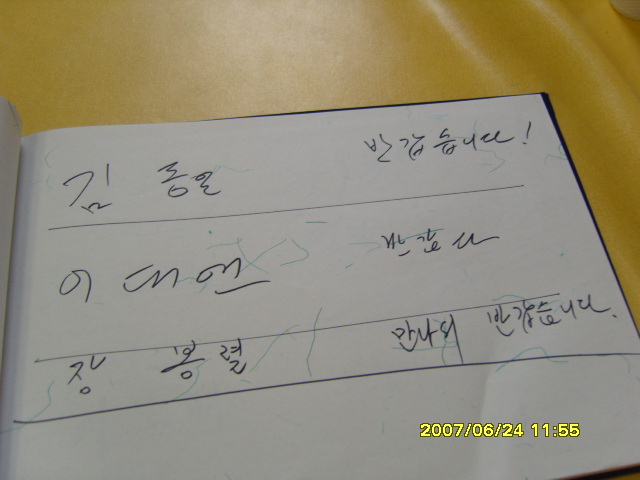 김 동일 반갑습니다!
이 대엔 반갑다
장 봉렬 만나서 반갑습니다.
2007/06/24 11:55